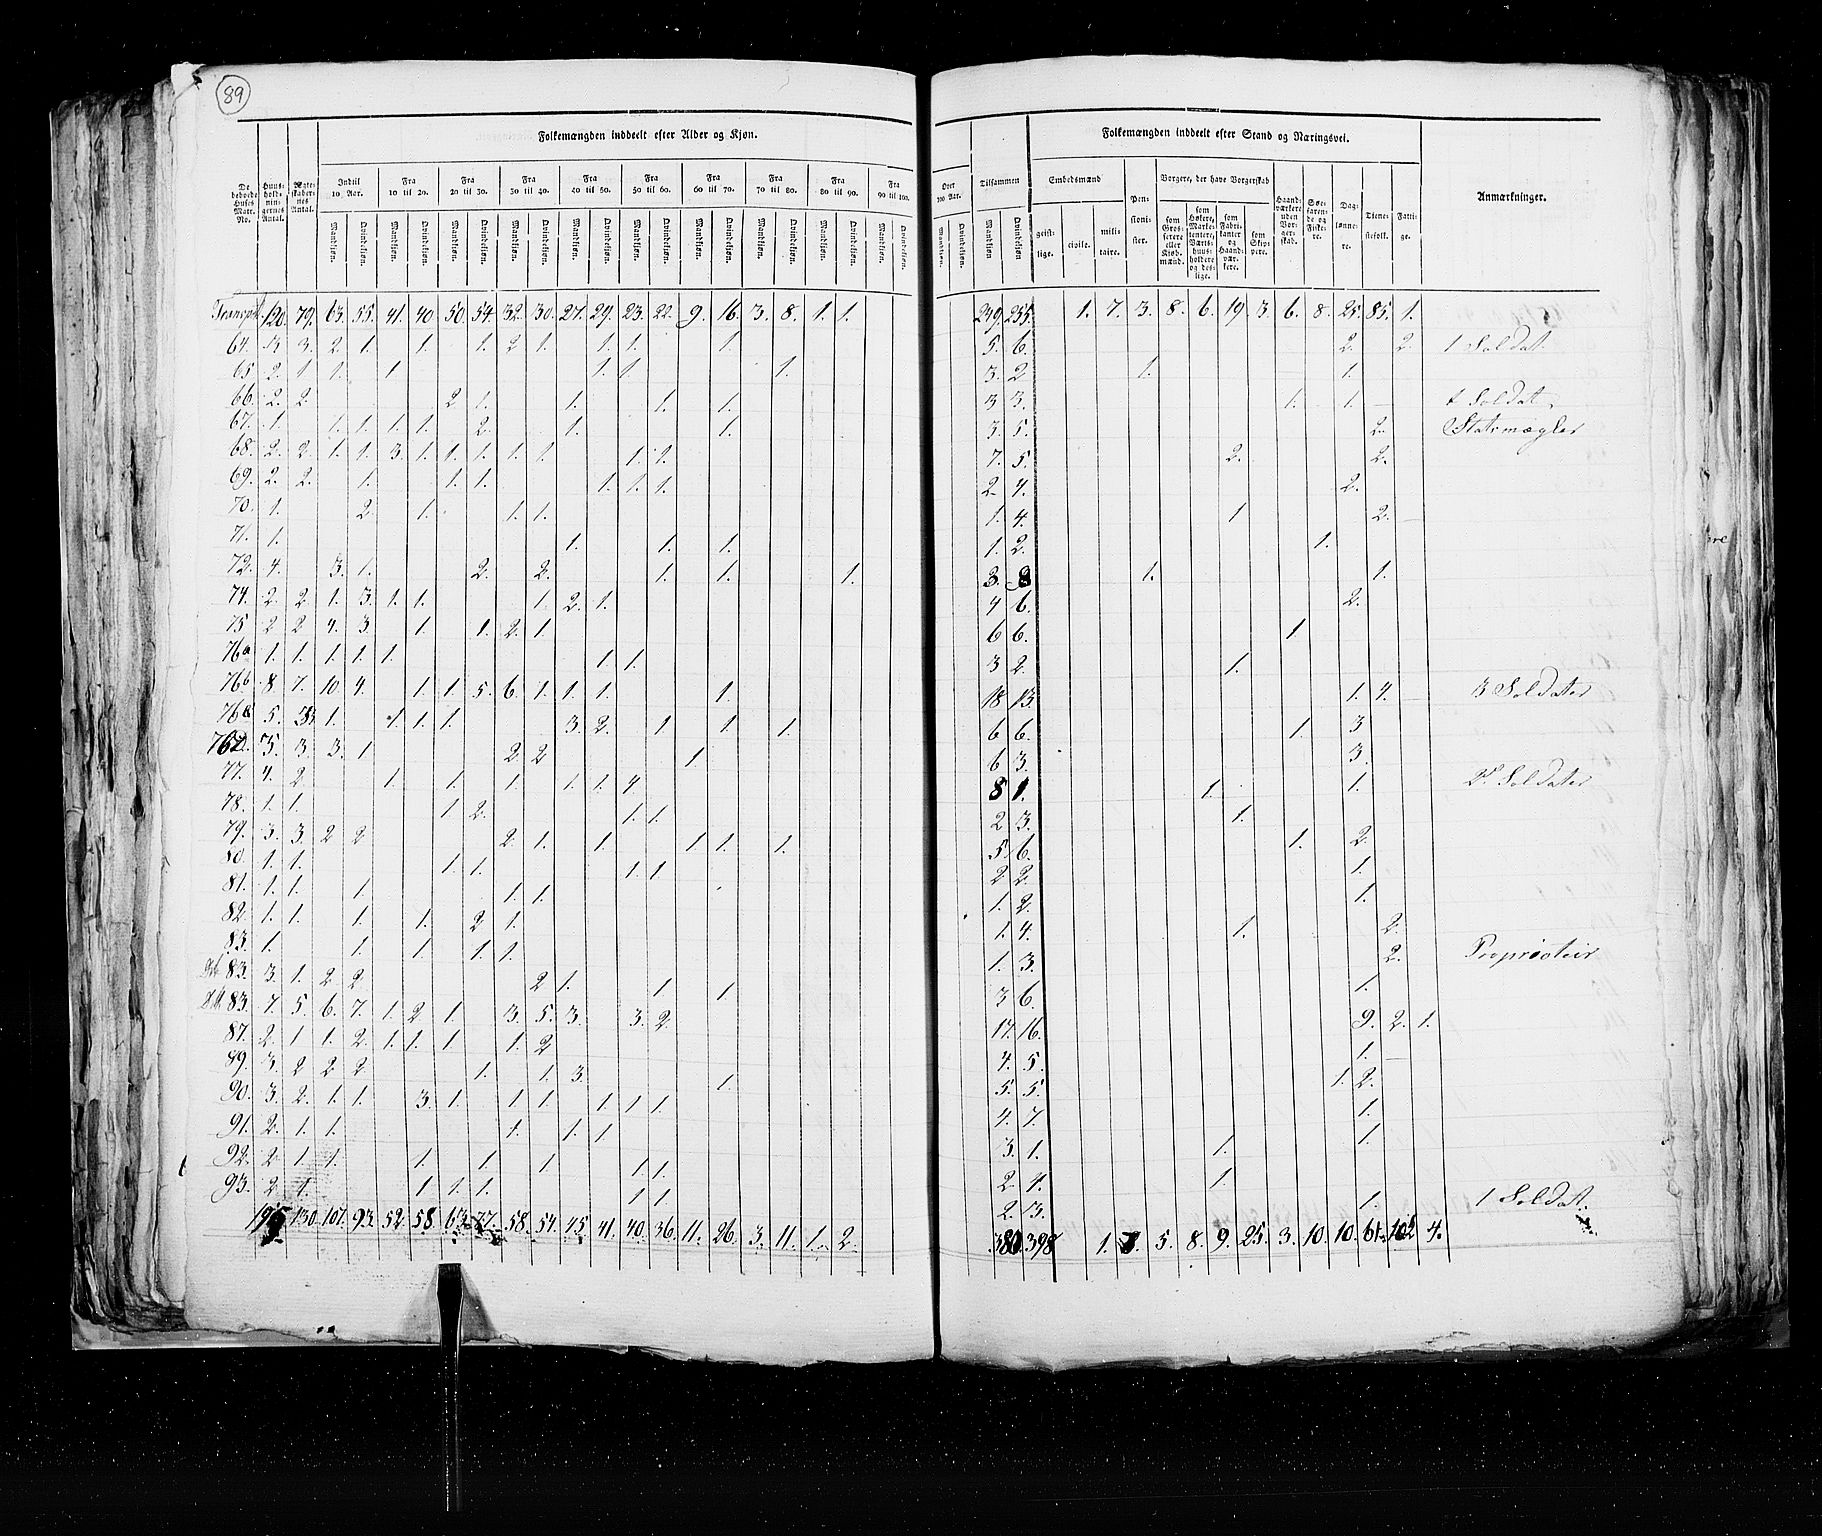 89
Folkemængden inddeelt efter Alder og Kjøn.
Folkemængden inddeelt efter Stand og Næringsvei.
De beboede Huses Matr. No. | Huusholdningernes Antal. | Ægteskabernes Antal. | Indtil 10 Aar. | Fra 10 til 20. | Fra 20 til 30. | Fra 30 til 40. | Fra 40 til 50. | Fra 50 til 60. | Fra 60 til 70. | Fra 70 til 80. | Fra 80 til 90. | Fra 90 til 100. | Over 100 Aar. | Tilsammen | Embedsmænd | Pensionister. | Borgere, der have Borgerskab | Haandværkere uden Borgerskab. | Søefarende og Fiskere. | Daglønnere. | Tienestefolk. | Fattige. | Anmærkninger.
Mandkjøn. | Qvindekjøn.
geistlige. | civile. | militaire. | som Grosserere eller Kjøbmænd. | som Høkere, Marketentere, Værtshuusholdere og deslige. | som Fabrikanter og Haandværkere. | som Skippere.
Transpt. 120. 79. 63. 55. 41. 40 50. 54. 32. 30. 27. 29. 23. 22. 9. 16. 3. 8. 1. 1. 249. 255. 1. 7. 3. 8. 6. 19. 3. 6. 8. 25. 85. 1.
64. 3 3. 2. 1. 1. 1. 2 1. 1. 1. 1. 5. 6. 2. 2. 1 Soldat.
65 2. 1 1. 1 1. 1 1. 3. 2 1. 1.
66. 2. 2. 2 1. 1. 1. 1. 3 3. 1. 1. 1 Soldat.
67. 1. 1. 1. 1. 1. 2. 1. 1. 3. 5. 2. Statsmægler
68. 2. 2. 1. 1. 3. 1. 1. 1. 1. 1. 1. 2. 7. 5. 2. 2.
69. 2. 2. 1. 1. 1. 1. 1. 1. 2 4. 2.
70. 1. 2 1. 1. 1. 1. 4. 1 2.
71. 1. 1. 1. 1. 1. 2. 1.
72. 4. 3. 1. 2. 2. 1. 1. 1. 3. 8 1. 1.
74. 2. 2. 1. 3. 1. 1. 1. 2. 1. 4 6. 2.
75 2 2 4. 3. 1. 1. 2. 1. 6 6. 1
76a 1. 1. 1. 1. 1. 1. 1. 3 2. 1.
76b 8. 7. 10. 4. 1. 1. 5. 6. 1. 1. 1. 1. 18 13. 1. 4. 3 Soldater
5. 1. 1. 1. 1. 3. 2. 1 1. 1. 6 6. 1. 3
5. 3. 3. 1. 2. 2 1. 6 3. 3.
77. 4. 2 1. 1. 1. 1. 1. 4 8 1. 1. 1. 2 Soldater
78. 1. 1. 1 2. 1. 1. 2 3. 1.
79. 3. 3. 2 2 2. 1. 1. 1. 1. 1. 5 6. 1. 2.
80. 1. 1. 1. 1. 1. 1. 2 2. 1.
81. 1. 1. 1. 1. 1. 1. 2. 1.
82. 1. 1. 1. 1. 2 1. 1. 4. 1. 2.
83. 1. 1. 1. 1. 1. 1. 3. 2. Proprietair
83. 3. 1. 2 2 2 1. 1. 1. 3 6. 1.
83. 7. 5. 6. 7. 1. 2 1. 3. 5. 3. 3. 2. 17. 16. 9. 2. 1.
87. 2. 1 1. 2. 1. 1. 1. 1. 2 4. 5. 1.
89. 3. 2 2 2 1. 1. 3. 1. 5. 5. 1. 2.
90. 3. 2. 1. 1. 3. 1. 1. 1. 1. 1. 1. 4. 7. 1.
91. 2. 1. 1. 1. 1. 1. 3. 1. 1. 1.
92. 2 1. 1. 1. 1. 1. 1. 1. 2 4. 1.
93. 2 1. 1 1. 1. 1. 1. 2. 3. 1. 1 Soldat.
195 130. 107. 93. 52. 58. 63. 77. 58. 54. 45. 41. 40. 36. 11. 26. 3. 11. 1. 2. 380. 398 1. 7. 5. 8. 9. 25. 3. 10. 10. 61. 102 4.